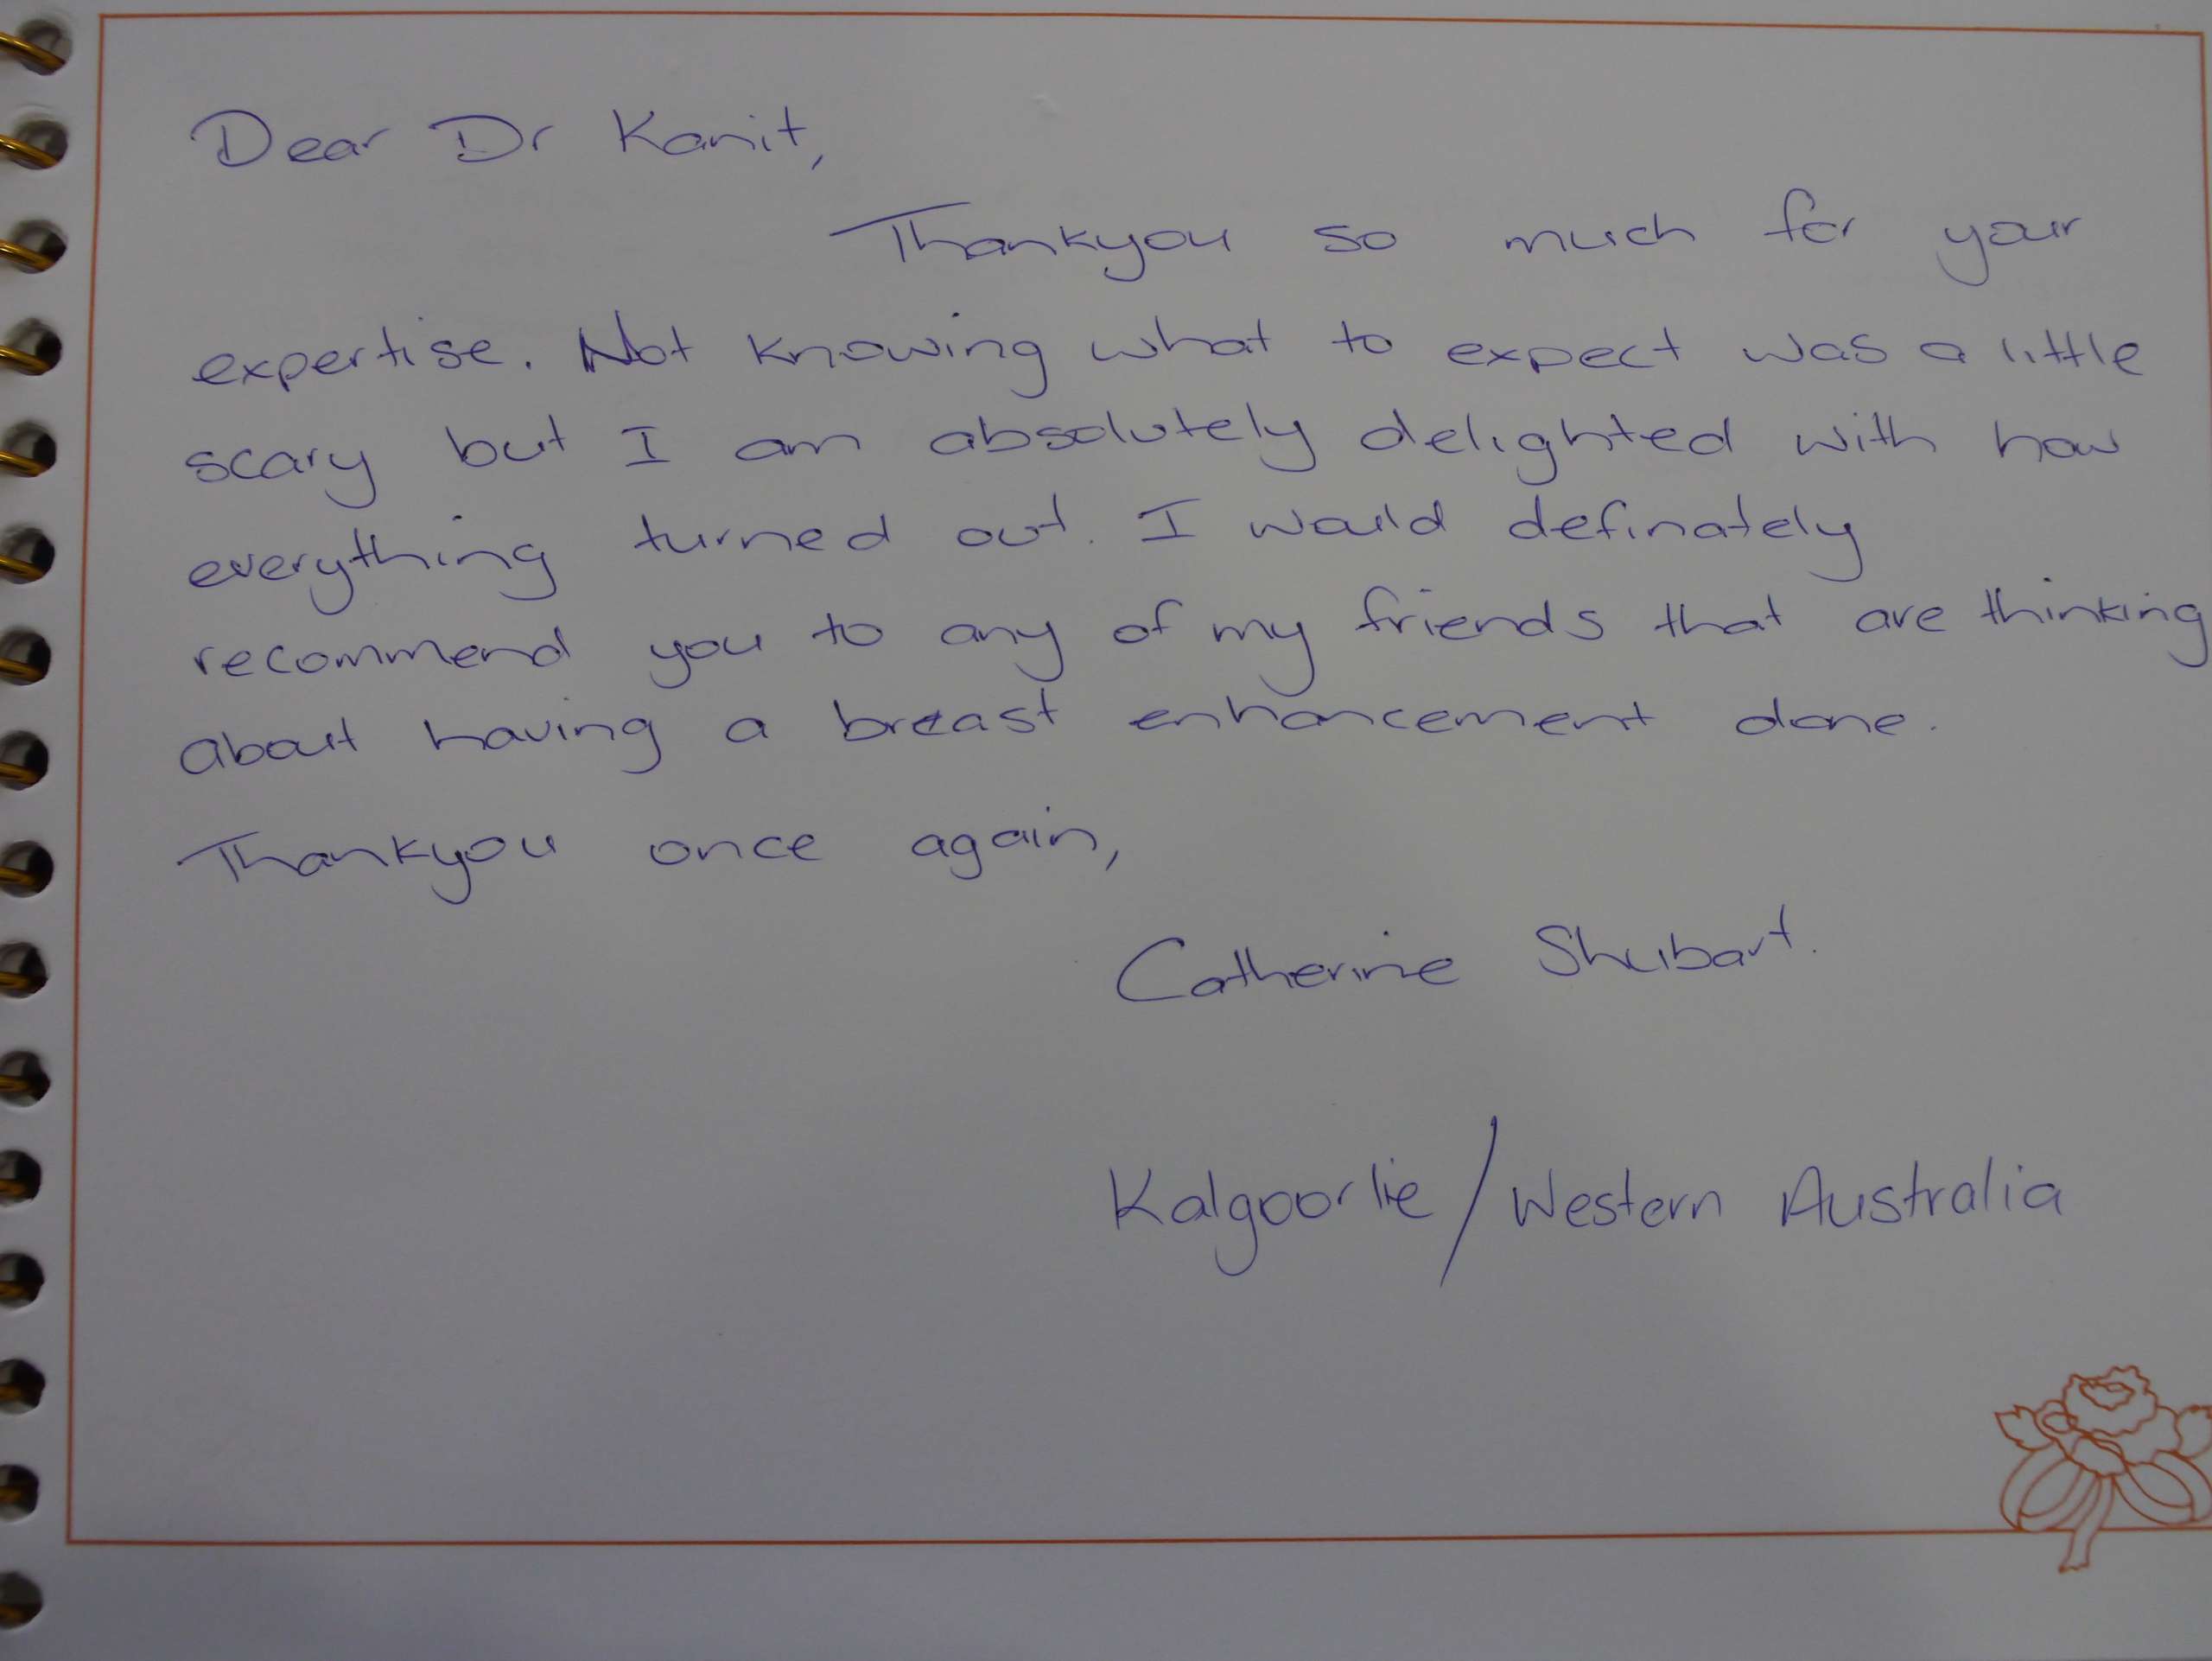 Dear Dr Kanit,
Thankyou so much for your
expertise. Not knowing what to expect was a little
scary but I am absolutely delighted with how
everything turned out. I would definately
recommend you to any of my friends that are thinking
about having a breast enhancement done.
Thankyou once again,
Catherine Shubart.
Kalgoorlie/Western Australia